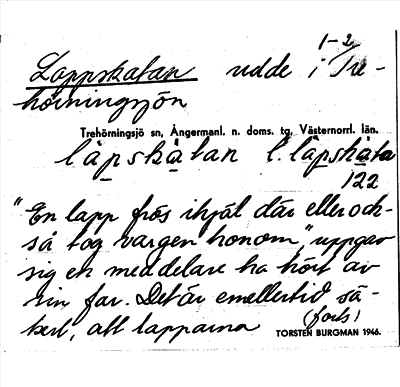 1-2
Lappskatan udde i Tre-
hörningsjön
Trehörningsjö sn, Ångermanl. n. doms. tg, Västernorrl. län.
läpskàtan l. läpskàta
122
"En lapp frös ihjäl där eller ock-
så tog vargen honom", uppgav
sig en meddelare ha hört av
sin far. Det är emellertid sä-
kert, att lapparna (forts)
TORSTEN BURGMAN 1946.